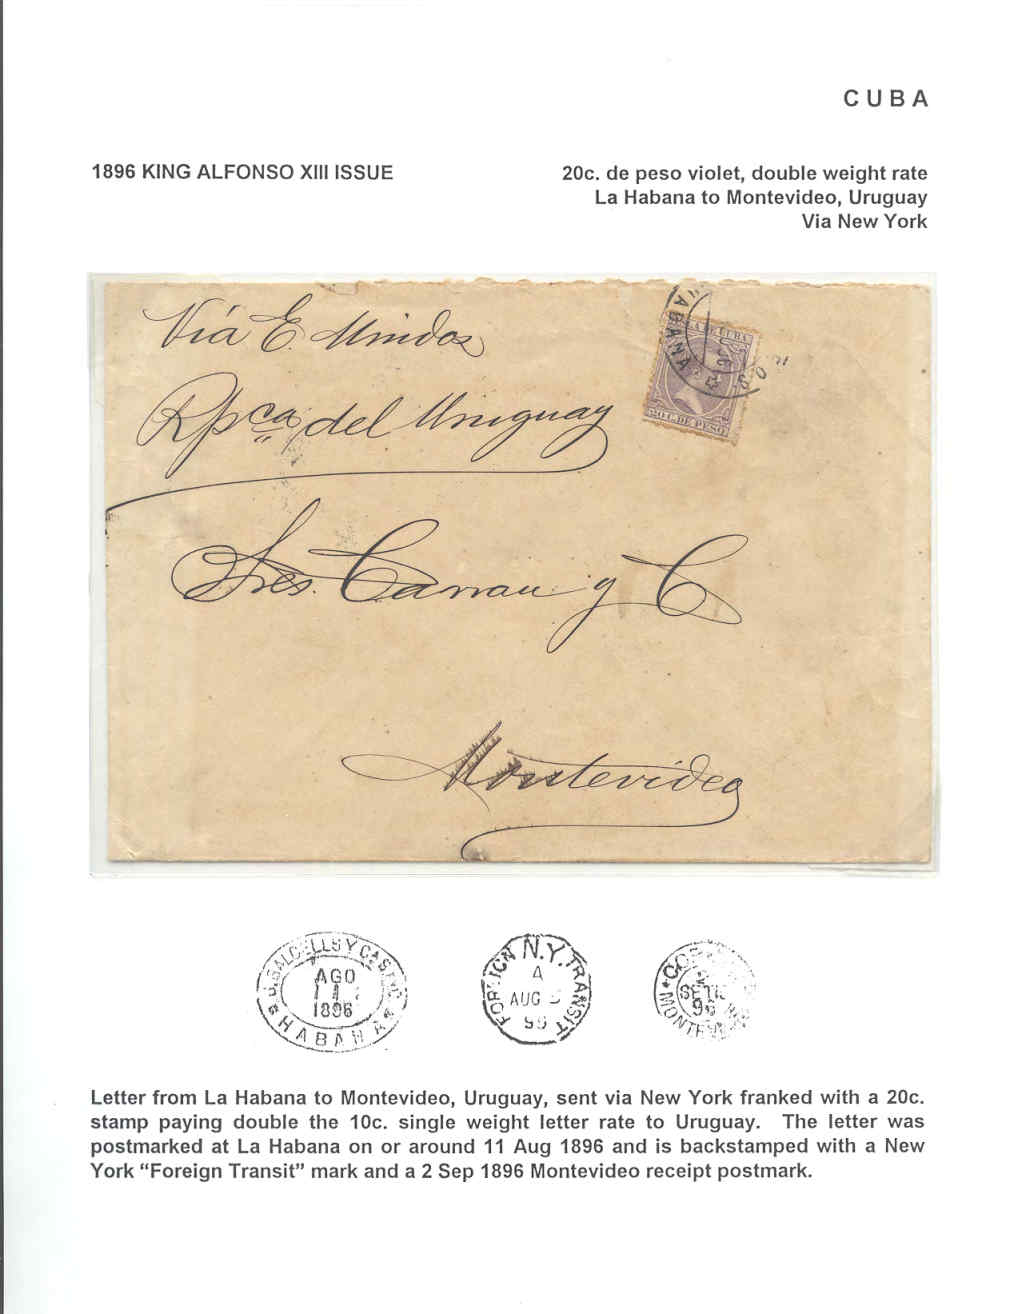 CUBA
1896 KING ALFONSO XIII ISSUE
20c. de peso violet, double weight rate
La Habana to Montevideo, Uruguay
Via New York
Vía E. Unidos
Rpca del Uruguay
Sres. Carrau y C
Montevideo
HABANA
LA DE CUBA
20 C. DE PESO
J. BALCELLS Y CA S EN C
AGO
11
1896
HABANA
N.Y.
FOREIGN TRANSIT
A
AUG
96
2
SETI
96
MONTEVIDEO
Letter from La Habana to Montevideo, Uruguay, sent via New York franked with a 20c.
stamp paying double the 10c. single weight letter rate to Uruguay. The letter was
postmarked at La Habana on or around 11 Aug 1896 and is backstamped with a New
York “Foreign Transit” mark and a 2 Sep 1896 Montevideo receipt postmark.